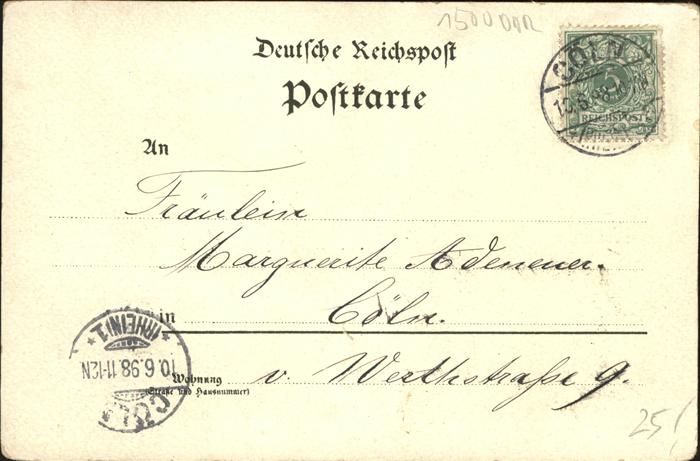 1500
Deutsche Reichspost
Postkarte
CÖLN
10.6.98.
5
REICHSPOST
An
Fräulein
Marguerite Adeneuer.
in Cöln.
Wohnung v. Werthstraße 9.
(Straße und Hausnummer)
(RHEIN) 1
10.6.98.11-12N
CÖLN
25